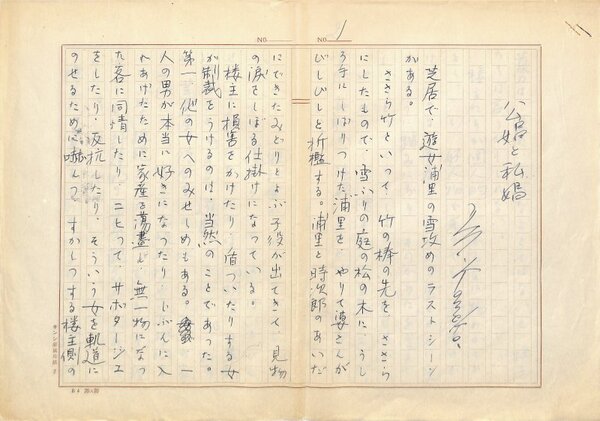 NO.
NO. 1
公娼と私娼
芝居で、遊女浦里の雪攻めのラストシーン
がある。
ささら竹といって、竹の棒の先を、ささら
にしたもので、雪ふりの庭の松の木に、うし
ろ手にしばりつけた浦里を、やりて婆さんが
びしびしと折檻する。浦里と時次郎のあいだ
にできたみどりとよぶ子役が出てきて、見物
の涙をしぼる仕掛けになっている。
楼主に損害をかけたり、盾ついたりする女
が制裁をうけるのは、当然のことであった。
第一、他の女へのみせしめもある。一
人の男が本当に好きになったり、じぶんに入
れあげたために家産を蕩盡し、無一物になっ
た客に同情したり、ニヒって、サボタージュ
をしたり、反抗したり、そういう女を軌道に
のせるために嚇しつ、すかしつする楼主側の